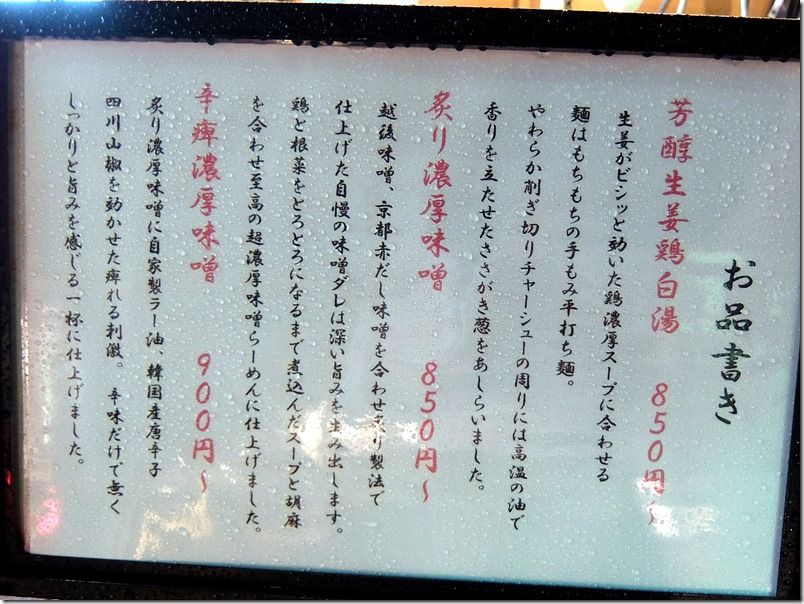 お品書き
芳醇生姜鶏白湯　850円~
生姜がビシッと効いた鶏濃厚スープに合わせる
麺はもちもちの手もみ平打ち麺。
やわらか削ぎ切りチャーシューの周りには高温の油で
香りを立たせたささがき葱をあしらいました。
炙り濃厚味噌　850円~
越後味噌、京都赤だし味噌を合わせ炙り製法で
仕上げた自慢の味噌ダレは深い旨みを生み出します。
鶏と根菜をとろとろになるまで煮込んだスープと胡麻
を合わせ至高の超濃厚味噌らーめんに仕上げました。
辛痺濃厚味噌　900円~
炙り濃厚味噌に自家製ラー油、韓国産唐辛子
四川山椒を効かせた痺れる刺激。 辛味だけで無く
しっかりと旨みを感じる一杯に仕上げました。